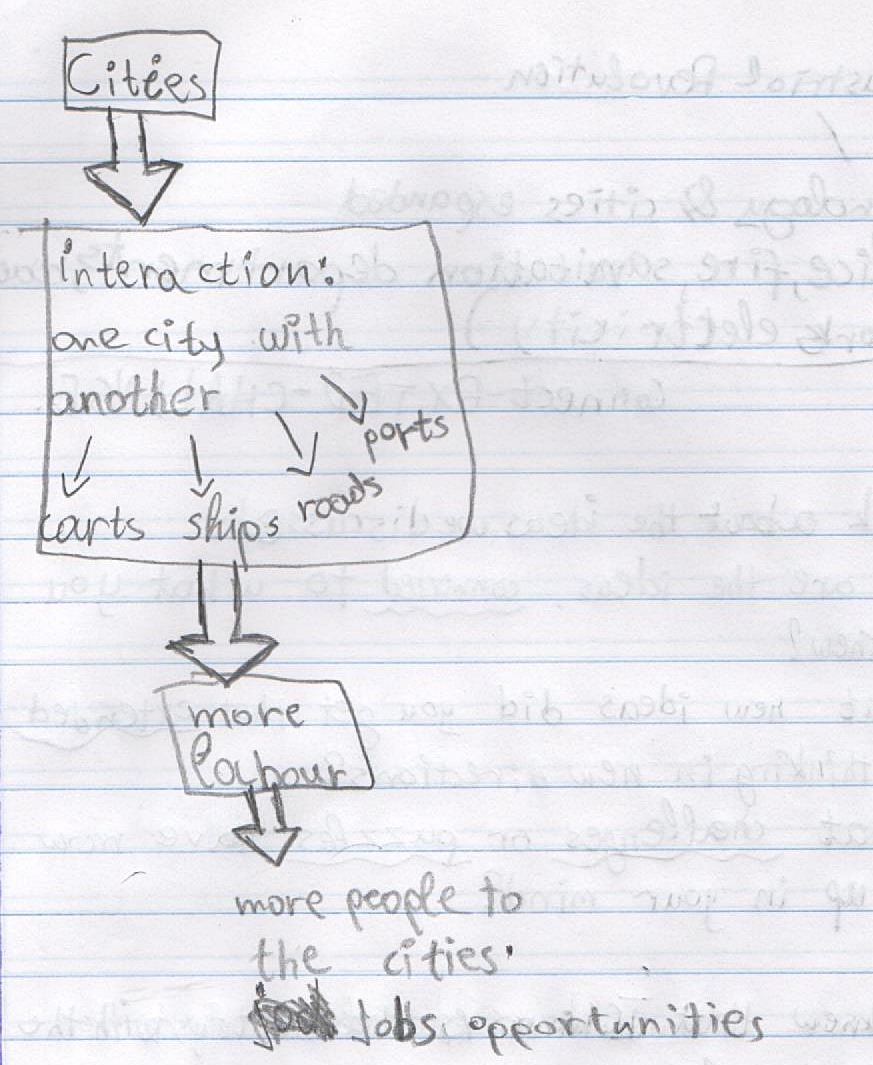 Cities
interaction:
one city with
another
carts ships roads ports
more
labour
more people to
the cities.
Jobs opportunities